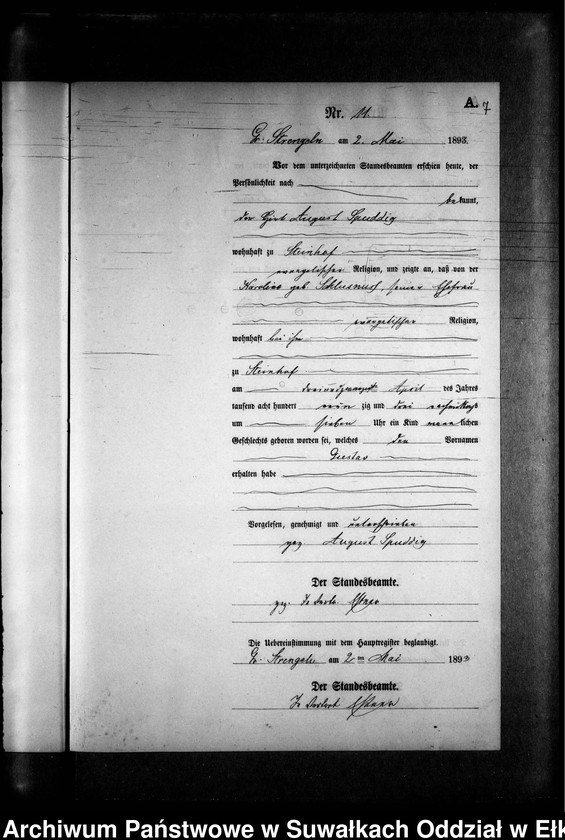 A. 7
Nr. 11.
Gr. Strengeln am 2. Mai 1893.
Vor dem unterzeichneten Standesbeamten erschien heute, der
Persönlichkeit nach
bekannt,
der Wirt August Spuddig
wohnhaft zu Steinhof
evangelischer Religion, und zeigte an, daß von der
Karoline geb. Schlusnus, seiner Ehefrau
evangelischer Religion,
wohnhaft bei ihm
zu Steinhof
am dreiundzwanzigst April des Jahres
tausend acht hundert neun zig und drei nachmittags
um sieben Uhr ein Kind männlichen
Geschlechts geboren worden sei, welches den Vornamen
Gustav
erhalten habe
Vorgelesen, genehmigt und unterschrieben
gez. August Spuddig
Der Standesbeamte.
gez.
Die Uebereinstimmung mit dem Hauptregister beglaubigt.
Gr. Strengeln am 2ten Mai 1893
Der Standesbeamte.
Archiwum Państwowe w Suwałkach Oddział w Ełk